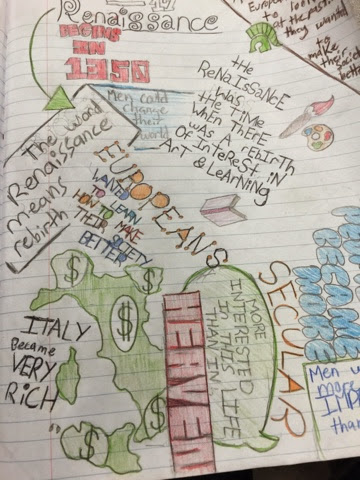 Renaissance
BEGINS
IN
1350
Men could
change
their
world
the
ReNaIssaNcE
was
the TIME
WHEN THERE
was A rEbIRTH
Of InteResT IN
ArT & LeArNiNg
to
they wanted
to
make
their
The world
Renaissance
means
rebirth
EUROPEANS
WANTED
TO LEARN
HOW TO MAKE
THEIR SOCIETY
BETTER
$
$
$
$
ITALY
Became
VERY
RicH
SECULAR
MORE
INTERESTED
IN THIS LIFE
THAN IN
HEAVEN
BECAME
MORE
Men
more